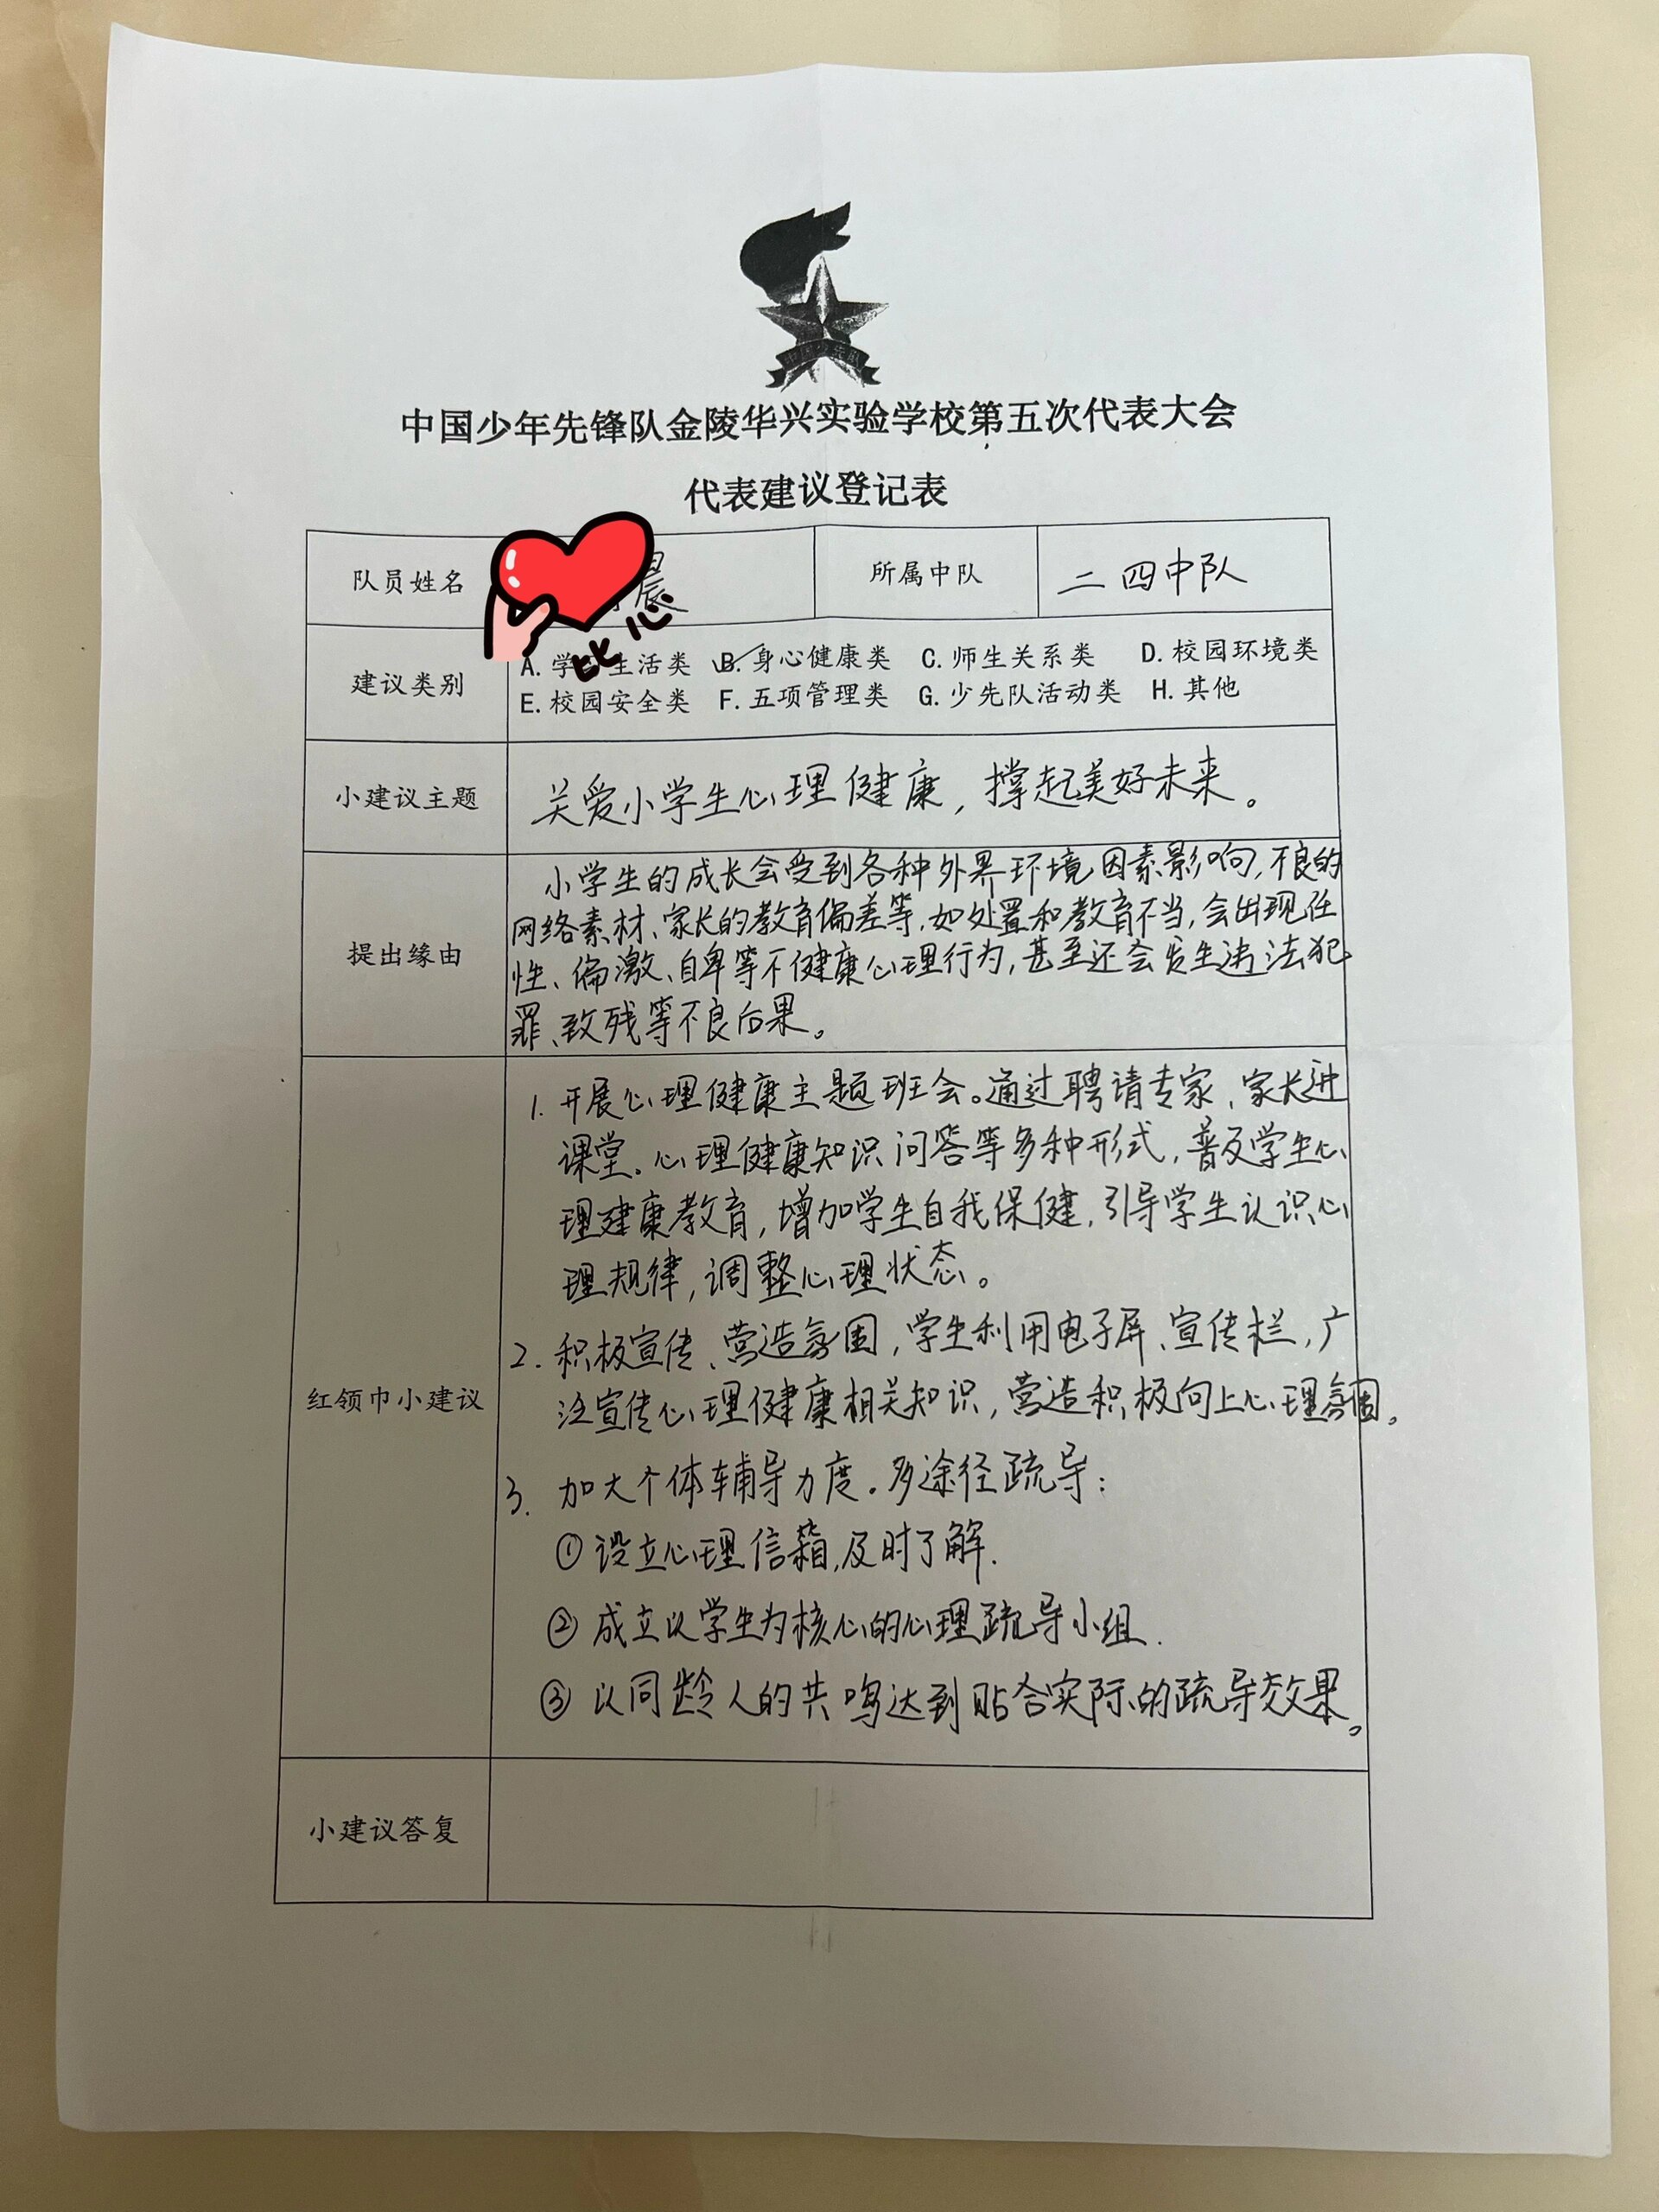 中国少年先锋队
中国少年先锋队金陵华兴实验学校第五次代表大会
代表建议登记表
队员姓名 晨 所属中队 二四中队
比心
建议类别
A.学 生活类 B.身心健康类 C.师生关系类 D.校园环境类
E.校园安全类 F.五项管理类 G.少先队活动类 H.其他
小建议主题 关爱小学生心理健康，撑起美好未来。
提出缘由
小学生的成长会受到各种外界环境因素影响,不良的
网络素材、家长的教育偏差等,如处置和教育不当,会出现任
性、偏激、自卑等不健康心理行为,甚至还会发生违法犯
罪、致残等不良后果。
红领巾小建议
1. 开展心理健康主题班会。通过聘请专家、家长进
课堂。心理健康知识问答等多种形式,普及学生心
理建康教育,增加学生自我保健,引导学生认识心
理规律,调整心理状态。
2. 积极宣传、营造氛围,学生利用电子屏、宣传栏,广
泛宣传心理健康相关知识,营造积极向上心理氛围。
3. 加大个体辅导力度。多途径疏导:
① 设立心理信箱,及时了解.
② 成立以学生为核心的心理疏导小组.
③ 以同龄人的共鸣达到贴合实际的疏导效果。
小建议答复